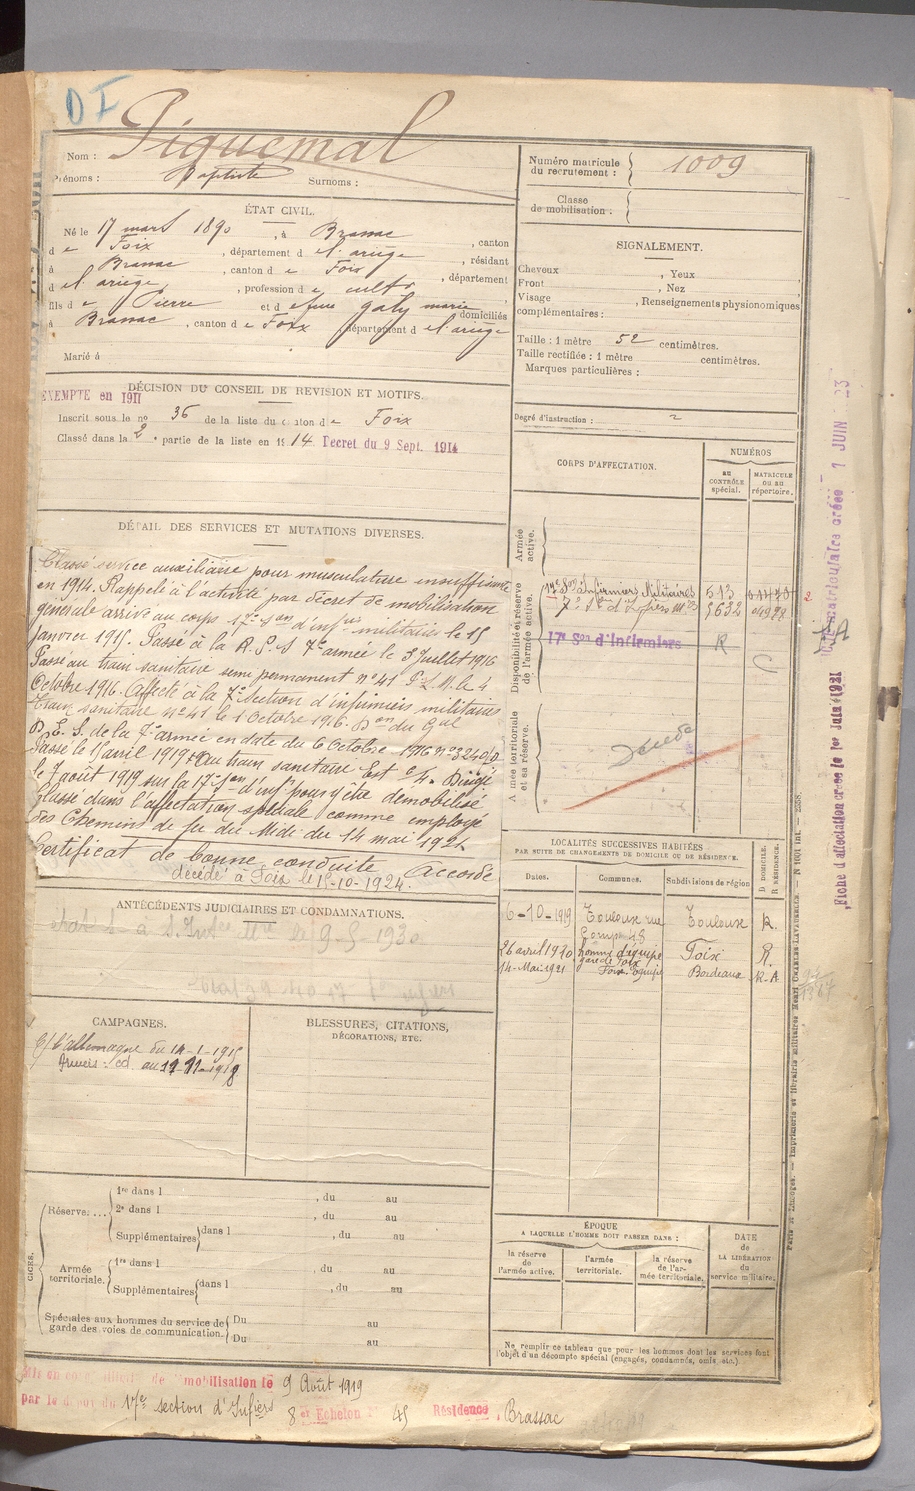 DI
Piquemal
Nom :
Prénoms : Baptiste Surnoms :
ÉTAT CIVIL.
Né le 17 mars 1890, à Brassac, canton
d e Foix, département d e l'ariège, résidant
à Brassac, canton d e Foix, département
d e l'ariège, profession d e cultr
fils d e Pierre et d e feue Galy marie domiciliés
à Brassac, canton d e Foix, département d e l'ariège
Marié à
DÉCISION DU CONSEIL DE REVISION ET MOTIFS.
EXEMPTE en 1911
Inscrit sous le no 36 de la liste du canton de Foix
Classé dans la 2e partie de la liste en 1914 Décret du 9 Sept. 1914
DÉTAIL DES SERVICES ET MUTATIONS DIVERSES.
Classé service auxiliaire pour musculature insuffisante
en 1914. Rappelé à l'activité par décret de mobilisation
générale arrivé au corps 17e Son d'infirs militaires le 15
janvier 1915. Passé à la R.S.S 7e armée le 3 Juillet 1916
Passé au train sanitaire semi permanent no 41 P.L.M. le 4
Octobre 1916. Affecté à la 7e Section d'infirmiers militaires
train sanitaire no 41 le 1 Octobre 1916. Don du Gal
D.E.S. de la 7e armée en date du 6 Octobre 1916 no 3240/D
Passé le 15 avril 1919 au train sanitaire Est no 4. Dirigé
le 7 août 1919 sur la 17e Son d'inf pour y être démobilisé
Classé dans l'affectation spéciale comme employé
des Chemins de fer du Midi du 14 mai 1921
Certificat de bonne conduite Accordé
décédé à Foix le 15-10-1924.
ANTÉCÉDENTS JUDICIAIRES ET CONDAMNATIONS.
CAMPAGNES.
C/ l'allemagne du 14-1-1915
au 11-11-1918
BLESSURES, CITATIONS,
DÉCORATIONS, ETC.
Réserve....
1re dans l , du au
2e dans l , du au
Supplémentaires dans l , du au
Armée territoriale.
1re dans l , du au
Supplémentaires dans l , du au
Spéciales aux hommes du service de garde des voies de communication.
Du au
Du au
Mis en congé illimité de démobilisation le 9 Août 1919
par le dépôt du 17e section d'Infiers 8er Echelon No 45 Résidence, Brassac
Numéro matricule
du recrutement : 1009
Classe
de mobilisation :
SIGNALEMENT.
Cheveux , Yeux ,
Front , Nez ,
Visage , Renseignements physionomiques
complémentaires :
Taille : 1 mètre 52 centimètres.
Taille rectifiée : 1 mètre centimètres.
Marques particulières :
Degré d'instruction : 2
CORPS D'AFFECTATION.
NUMÉROS
au
CONTRÔLE
spécial.
MATRICULE
ou au
répertoire.
Armée
active.
Disponibilité et réserve
de l'armée active.
17e Son Infirmiers Militaires 513
7e Son d'Infiers Mres 5632 04928
17e Son d'Infirmiers R
C
Armée territoriale
et sa réserve.
Décédé
LOCALITÉS SUCCESSIVES HABITÉES
PAR SUITE DE CHANGEMENTS DE DOMICILE OU DE RÉSIDENCE.
Dates. Communes. Subdivisions de région
D DOMICILE.
R RÉSIDENCE.
6-10-1919 Toulouse rue Toulouse R.
48
26 avril 1920 homme d'équipe Foix R.
gare de Foix
14-Mai 1921 Foix Equipe Bordeaux R-A
ÉPOQUE
A LAQUELLE L'HOMME DOIT PASSER DANS :
la réserve
de
l'armée active.
l'armée
territoriale.
la réserve
de l'ar-
mée territoriale.
DATE
de
LA LIBÉRATION
du
service militaire.
Ne remplir ce tableau que pour les hommes dont les services font
l'objet d'un décompte spécial (engagés, condamnés, omis, etc.).
Paris et Limoges. — Imprimerie et librairie militaires Henri CHARLES-LAVAUZELLE.
Fiche d'affectation créée le 1er Juin 1921